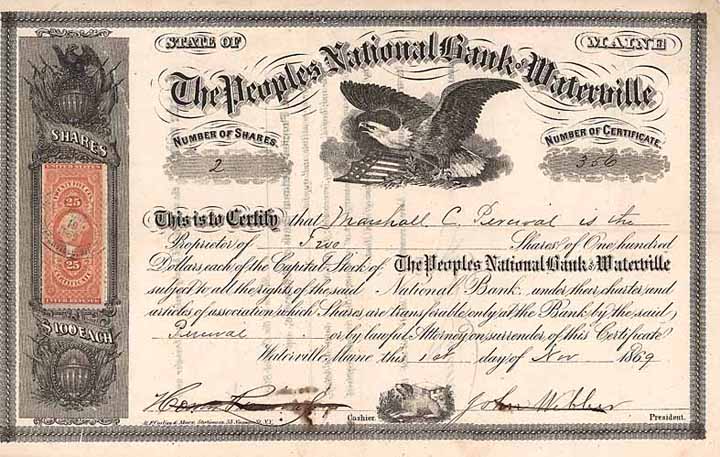 STATE OF MAINE
The Peoples National Bank of Waterville
NUMBER OF SHARES
2
NUMBER OF CERTIFICATE
356
SHARES
UNITED STATES
25
25
CERTIFICATE
INTER. REVENUE
$100 EACH
This is to Certify that Marshall C. Percival is the
Proprietor of Two Shares of One hundred
Dollars each of the Capital Stock of The Peoples National Bank of Waterville
subject to all the rights of the said National Bank under their charter and
articles of association which Shares are transferable only at the Bank by the said
Percival or by lawful Attorney on surrender of this Certificate
Waterville, Maine this 1st day of Nov 1869
Homer Percival Cashier. John Webber President.